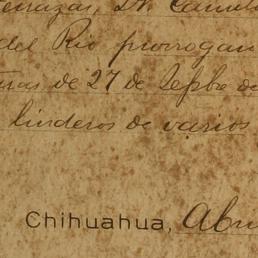 Terrazas, Dn. Camilo
del Rio prorrogan
turas de 27 de Sepbre de
linderos de varios
Chihuahua, Abri